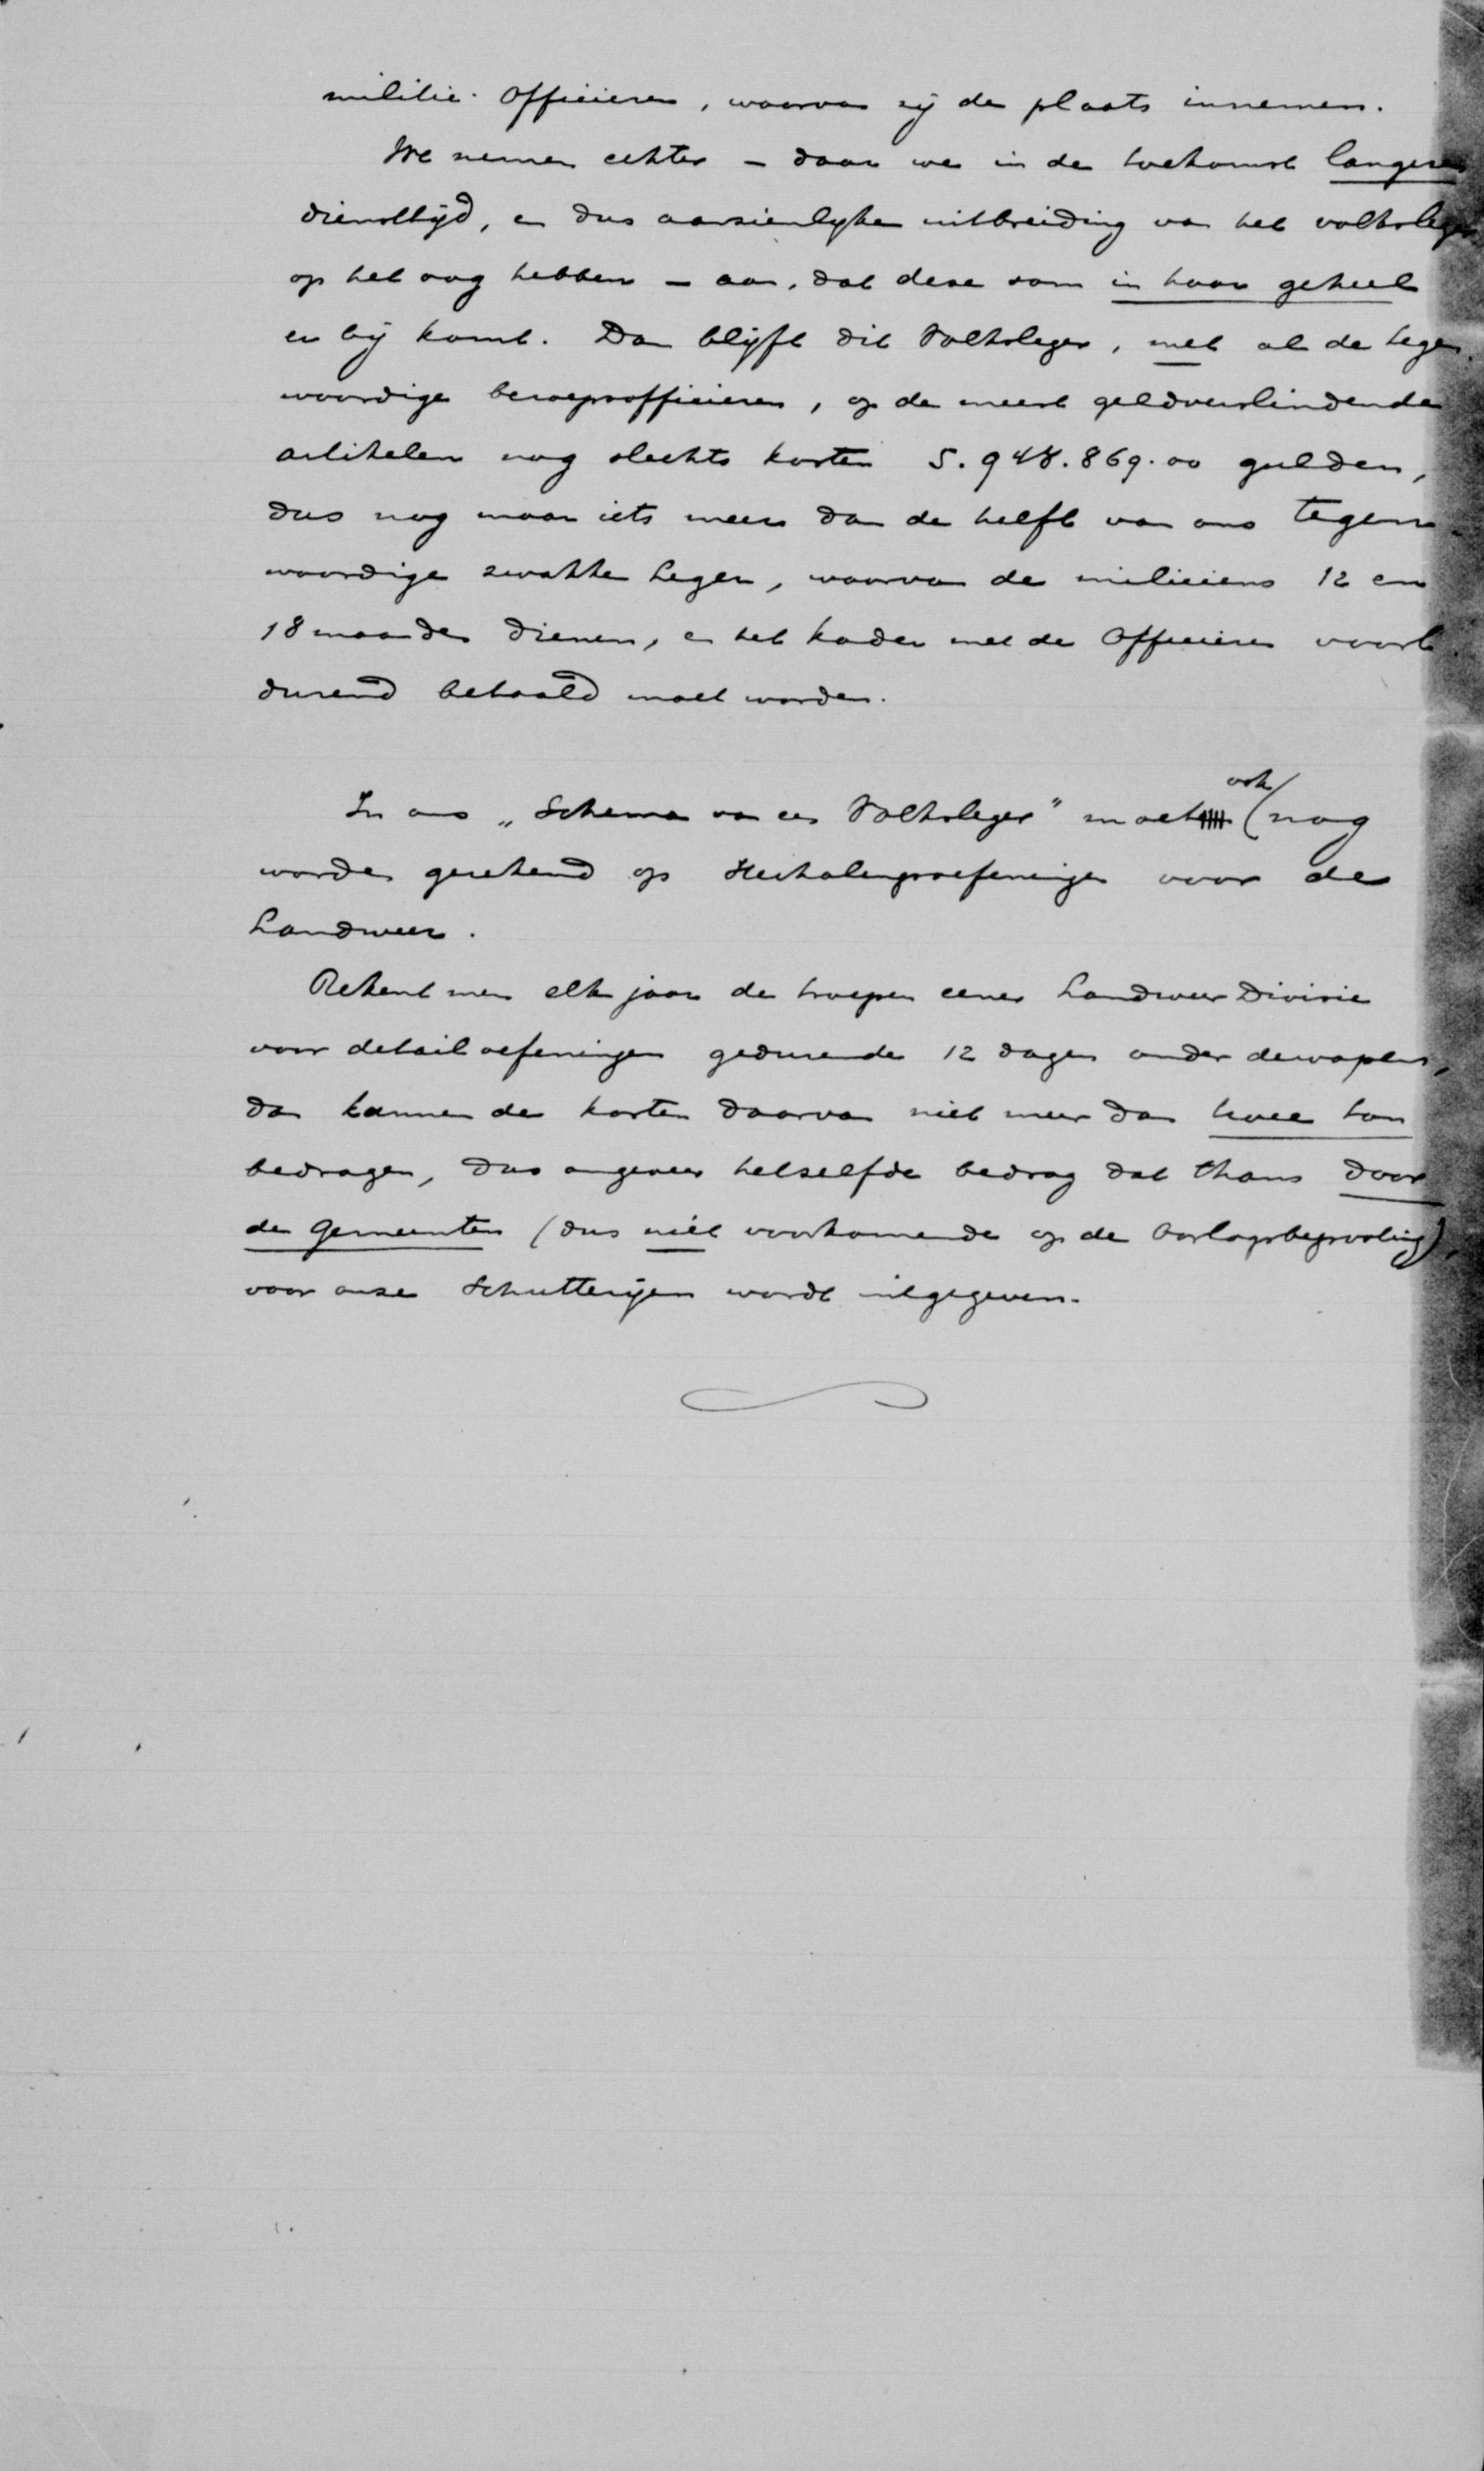 militie-Officieren, waarvan zij de plaats innemen.
We nemen echter — daar we in de toekomst langeren
diensttijd, en dus aanzienlijke uitbreiding van het volksleger
op het oog hebben — aan, dat deze som in haar geheel
er bij komt. Dan blijft dit Volksleger, met al de tegen-
woordige beroepsofficieren, op de meest geldverslindende
artikelen nog slechts kosten 5.948.869.00 gulden,
dus nog maar iets meer dan de helft van ons tegen-
woordige zwakke leger, waarvan de miliciens 12 en
18 maanden dienen, en het kader met de Officieren voort-
durend betaald moet worden.
In ons „Schema van een Volksleger" moet ook nog
worden gerekend op Herhalingsoefeningen voor de
Landweer.
Rekent men elk jaar de troepen eener Landweer Divisie
voor detailoefeningen gedurende 12 dagen onder de wapens,
dan kunnen de kosten daarvan niet meer dan twee ton
bedragen, dus ongeveer hetzelfde bedrag dat thans door
de Gemeenten (dus niet voorkomende op de Oorlogsbegrooting),
voor onze Schutterijen wordt uitgegeven.